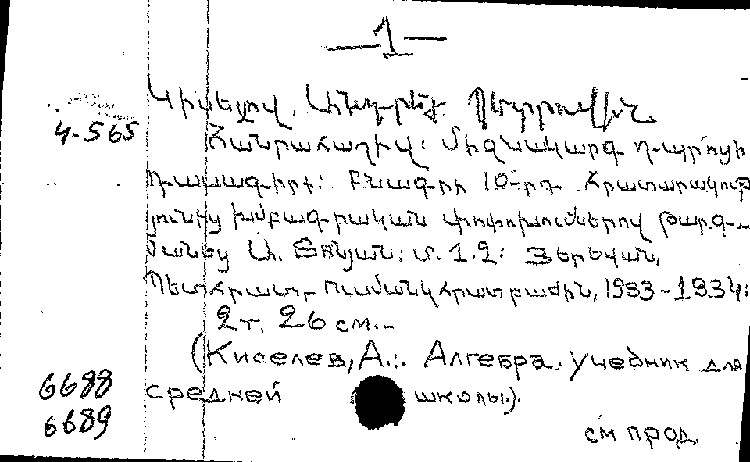 — 1 —
Կիսելով, Անդրեյ Պետրովիչ
Կ-565 Հանրահաշիվ: Միջնակարգ դպրոցի
դասագիրք: Բնագրի 10-րդ հրատարակութ
յունից խմբագրական փոփոխումներով թարգ-
մանեց Ա. Տոնյան: մ. 1.2: Յերևան,
Պետհրատ. Ուսմանկհրատբաժին, 1933-1934:
2 т. 26 см.-
(Киселев, А.: Алгебра. Учебник для
6688 средней школы.).
6689
см прод.